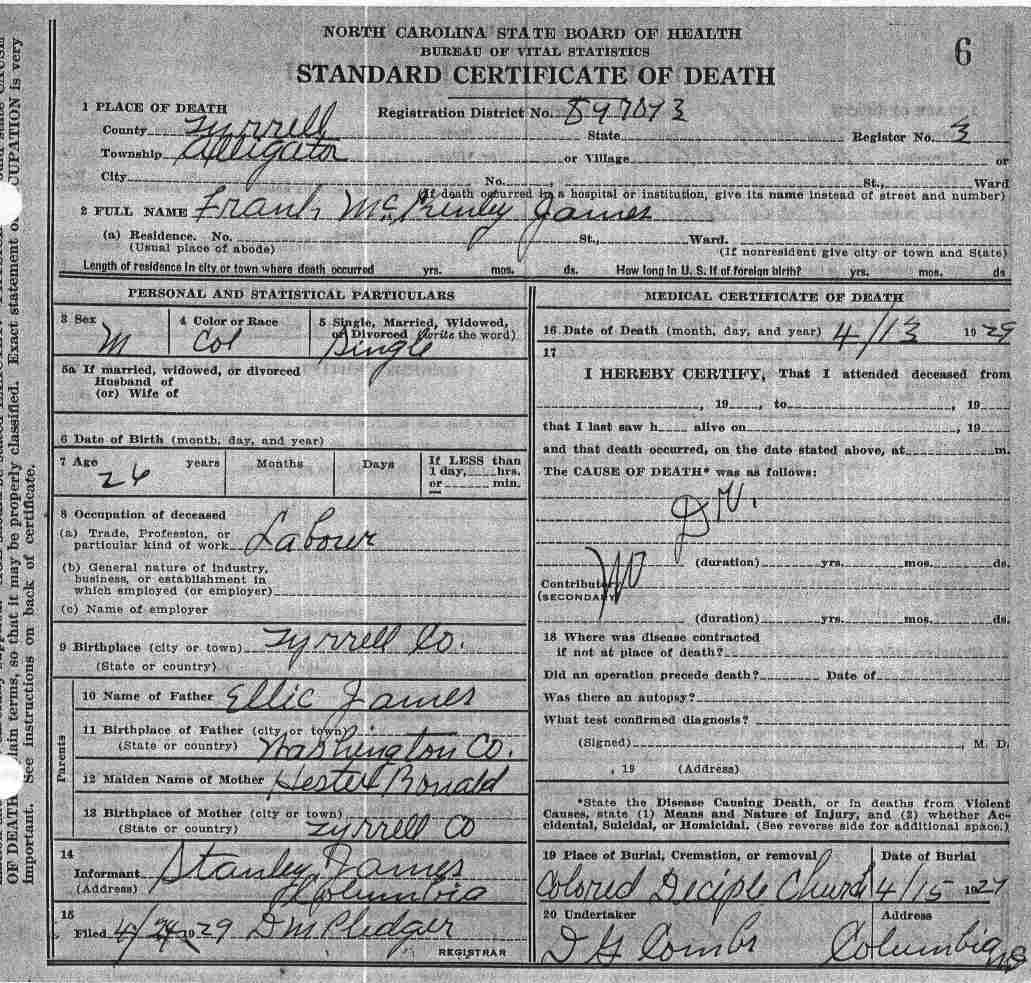 NORTH CAROLINA STATE BOARD OF HEALTH
BUREAU OF VITAL STATISTICS
STANDARD CERTIFICATE OF DEATH
6
1 PLACE OF DEATH
Registration District No. 897073
County Tyrrell State Register No. 3
Township Alligator or Village or
City No. , St., Ward
(If death occurred in a hospital or institution, give its name instead of street and number)
2 FULL NAME Frank McKenley James
(a) Residence. No. St., Ward.
(Usual place of abode) (If nonresident give city or town and State)
Length of residence in city or town where death occurred yrs. mos. ds. How long in U. S. if of foreign birth? yrs. mos. ds
PERSONAL AND STATISTICAL PARTICULARS
3 Sex 4 Color or Race 5 Single, Married, Widowed,
or Divorced (write the word)
M Col Single
5a If married, widowed, or divorced
Husband of
(or) Wife of
6 Date of Birth (month, day, and year)
7 Age years Months Days If LESS than
1 day, hrs.
or min.
26
8 Occupation of deceased
(a) Trade, Profession, or
particular kind of work Labour
(b) General nature of industry,
business, or establishment in
which employed (or employer)
(c) Name of employer
9 Birthplace (city or town) Tyrrell Co.
(State or country)
Parents
10 Name of Father Ellic James
11 Birthplace of Father (city or town)
(State or country) Washington Co.
12 Maiden Name of Mother Hester Ronald
13 Birthplace of Mother (city or town)
(State or country) Tyrrell Co
14
Informant Stanley James
(Address) Columbia
15
Filed 4/24 1929 D M Pledger
REGISTRAR
MEDICAL CERTIFICATE OF DEATH
16 Date of Death (month, day, and year) 4/13 1929
17
I HEREBY CERTIFY, That I attended deceased from
, 19 , to , 19
that I last saw h alive on , 19
and that death occurred, on the date stated above, at m.
The CAUSE OF DEATH* was as follows:
(duration) yrs. mos. ds.
Contributory
(SECONDARY)
(duration) yrs. mos. ds.
18 Where was disease contracted
if not at place of death?
Did an operation precede death? Date of
Was there an autopsy?
What test confirmed diagnosis?
(Signed) , M. D.
, 19 (Address)
*State the Disease Causing Death, or in deaths from Violent
Causes, state (1) Means and Nature of Injury, and (2) whether Ac-
cidental, Suicidal, or Homicidal. (See reverse side for additional space.)
19 Place of Burial, Cremation, or removal Date of Burial
Colored Deciple Church 4/15 1929
20 Undertaker Address
D G Combs Columbia NC
CUPATION is very
Exact statement
lain terms, so that it may be properly classified.
OF DEATH
important. See instructions on back of certificate.